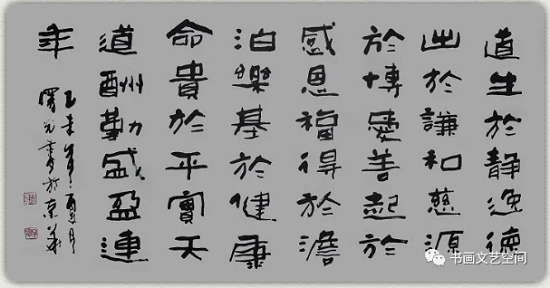 道生於静逸德
出於謙和慈源
於博愛善起於
感恩福得於澹
泊樂基於健康
命貴於平實天
道酬勤盛盈連
年
乙未年酉月
光書於京華
书画文艺空间